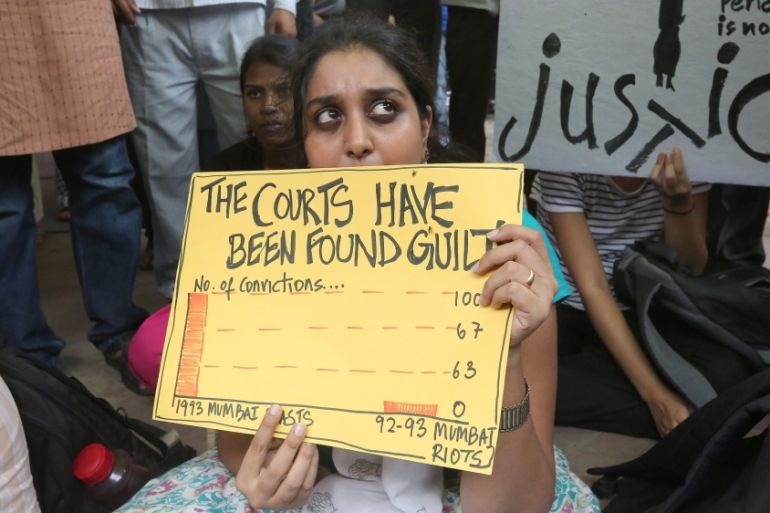 THE COURTS HAVE
BEEN FOUND GUILT
No. of Convictions....
100
67
63
0
1993 MUMBAI ASTS
92-93 MUMBAI
RIOTS
is no
justic